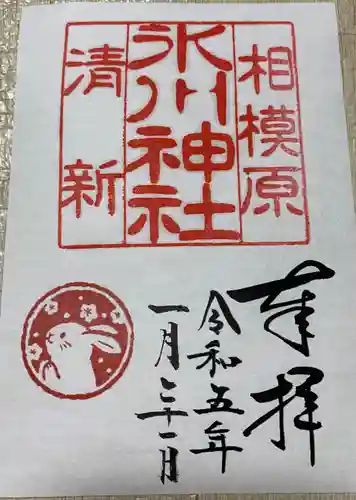 相模原
氷川神社
清新
奉拝
令和五年
一月三十一日